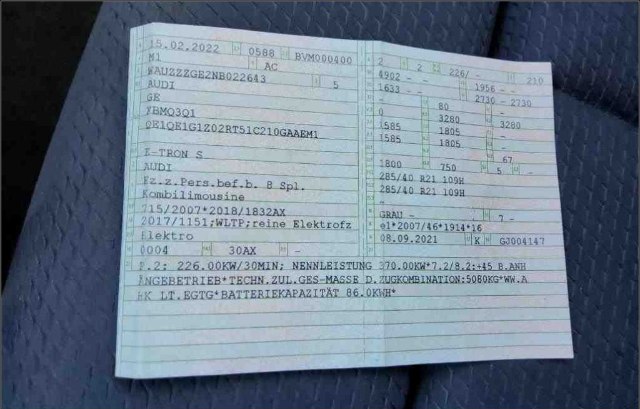 15.02.2022 0588 BVM000400
M1 AC
WAUZZZGE2NB022643 5
AUDI
GE
YBMQ3Q1
QE1QE1G1Z02RT51C210GAAEM1
E-TRON S
AUDI
Fz.z.Pers.bef.b. 8 Spl.
Kombilimousine
715/2007*2018/1832AX
2017/1151;WLTP;reine Elektrofz
Elektro
0004 30AX -
2 2 226/ - 210
4902 - - 1956 -
1633 - - 2730 - 2730
- 80 -
0 3280 3280
1585 1805 -
1585 1805 -
- 67
1800 750 5 -
285/40 R21 109H
285/40 R21 109H
-
GRAU - 7 -
e1*2007/46*1914*16
08.09.2021 K GJ004147
P.2: 226.00KW/30MIN; NENNLEISTUNG 370.00KW*7.2/8.2:+45 B.ANH
ÄNGEBETRIEB*TECHN.ZUL.GES-MASSE D.ZUGKOMBINATION:5080KG*WW.A
HK LT.EGTG*BATTERIEKAPAZITÄT 86.0KWH*